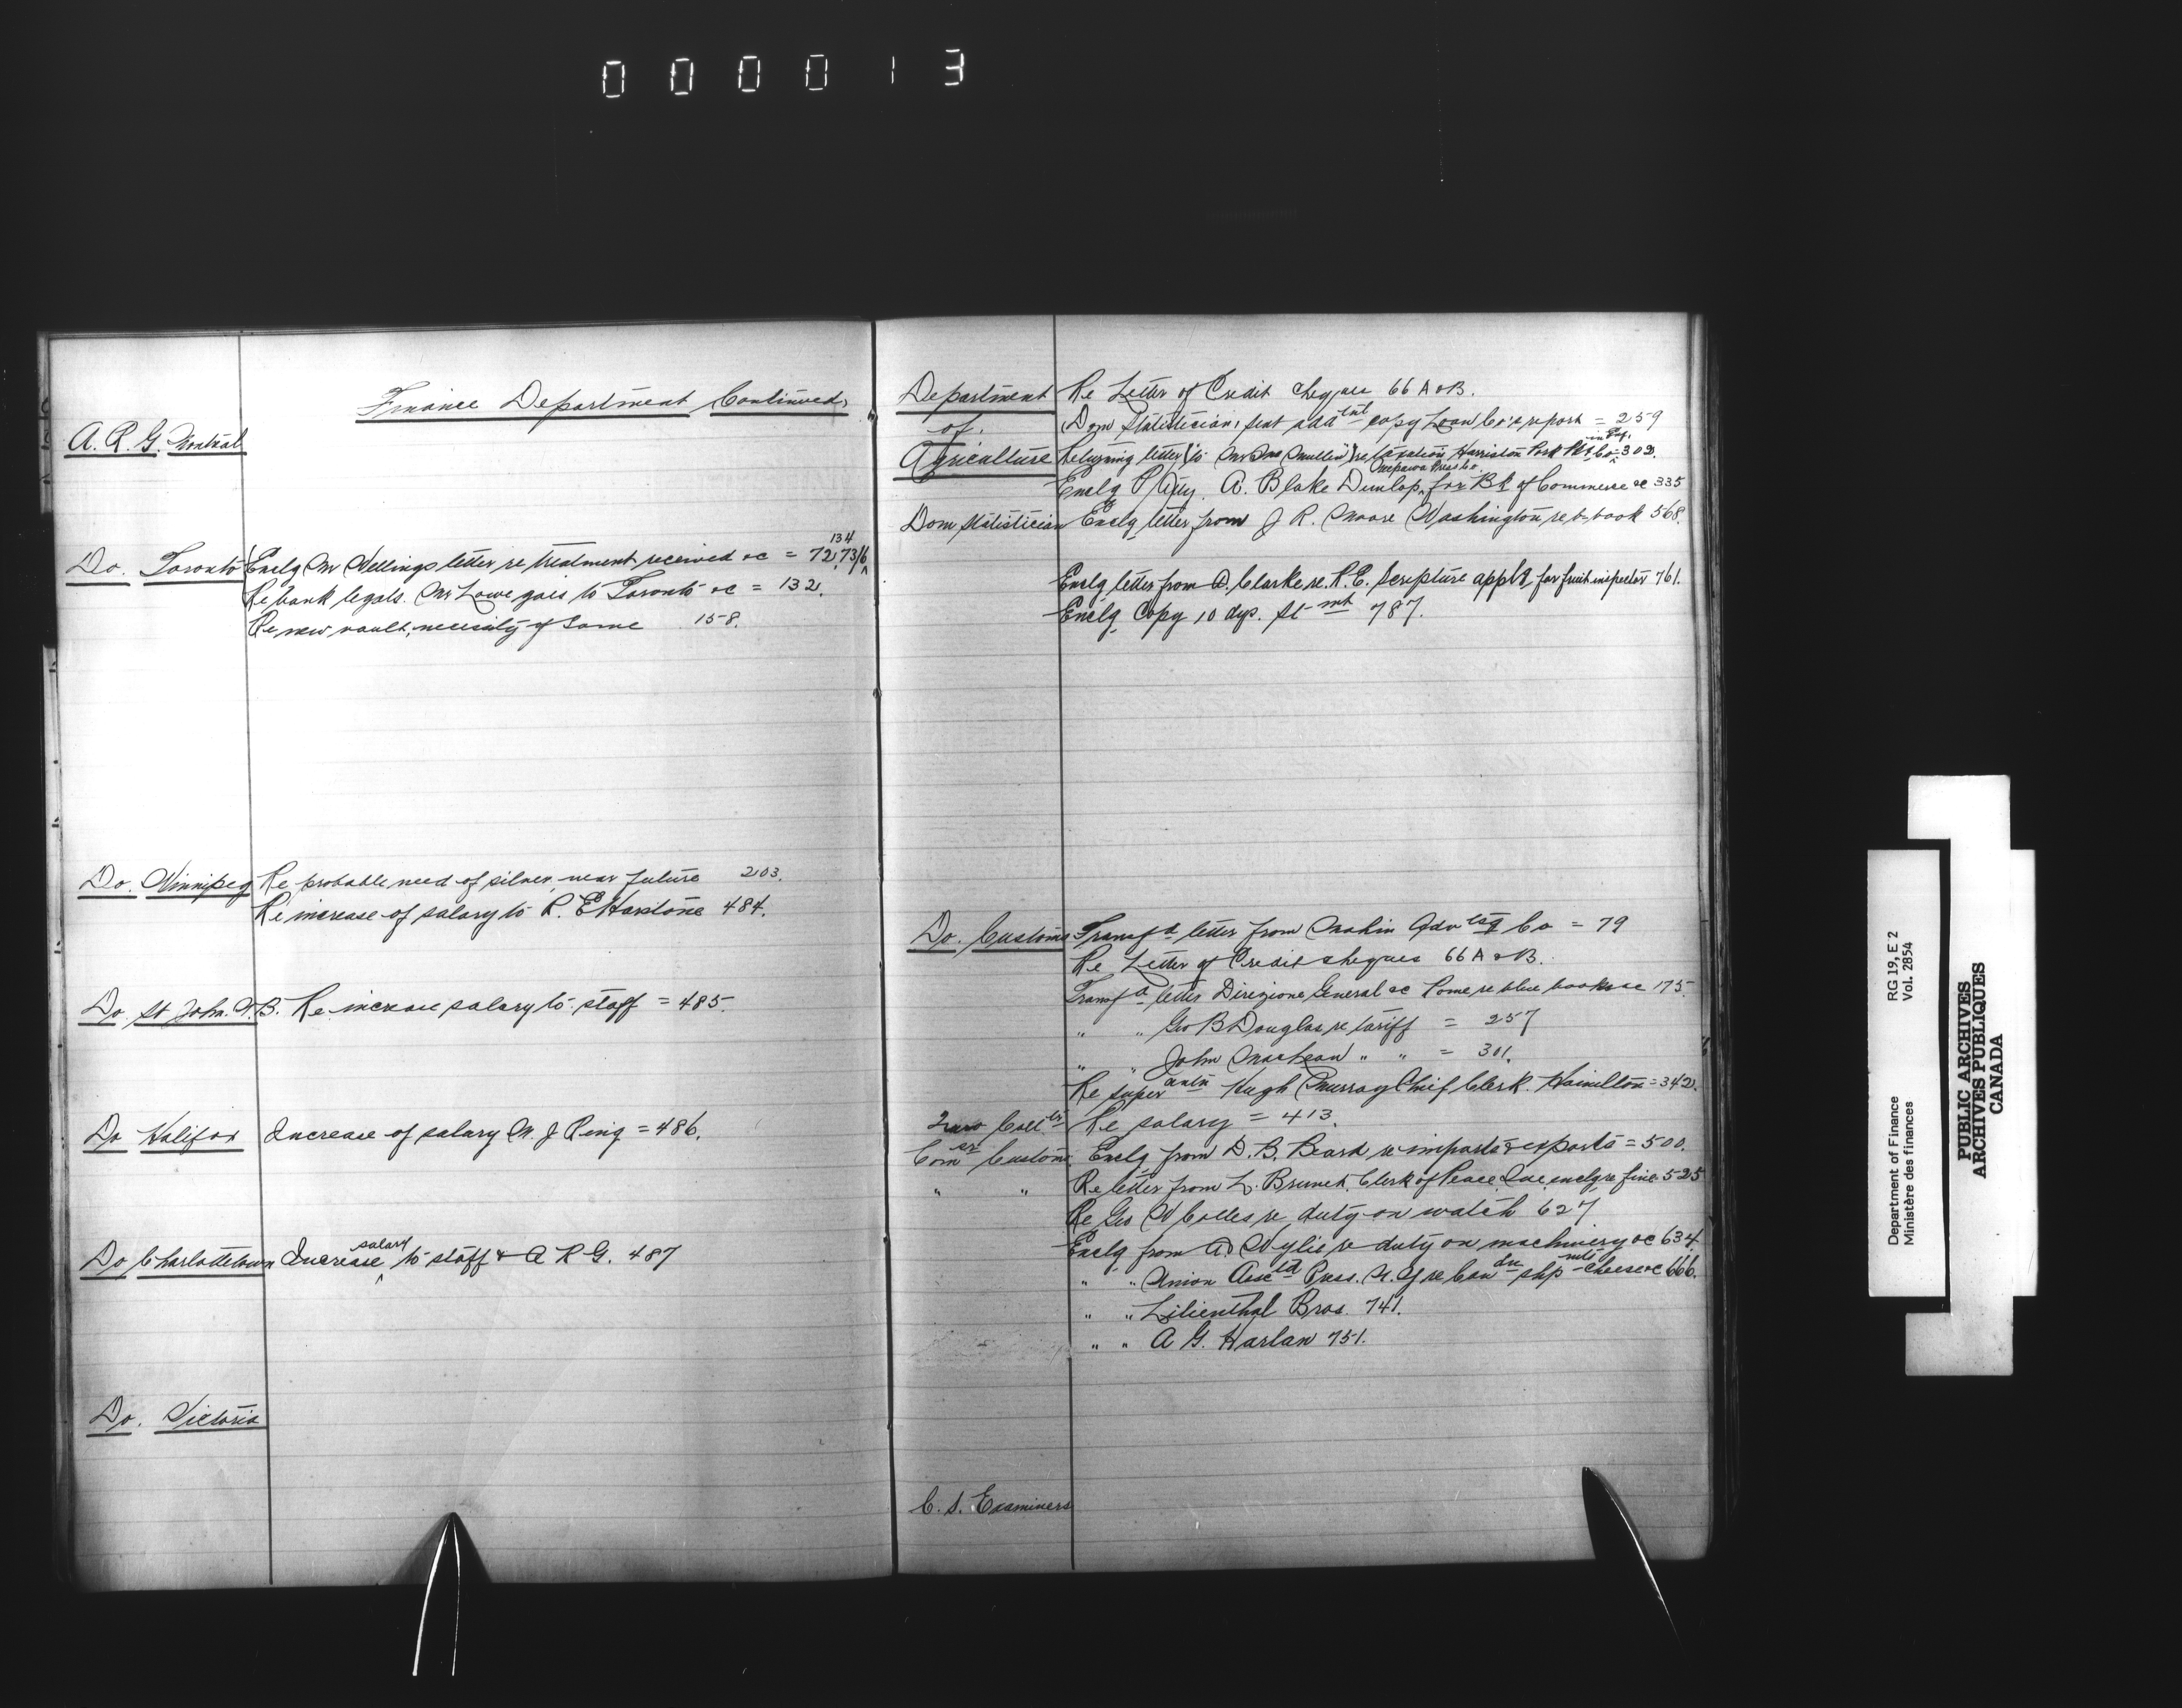 000013
Finance Department Continued,
A. R. G. Montreal
134
Do. Toronto Enclg Mr Wellings letter re treatment received &c = 72, 73/6
Re bank legals. Mr Lowe goes to Toronto &c = 132.
Re new vault, necessity of same 158.
Do. Winnipeg Re probable need of silver near future 203.
Re increase of salary to R. E Harstone 484.
Do. St John. N.B. Re increase salary to staff = 485.
Do Halifax Increase of salary W. J Ring = 486.
salary
Do Charlottetown Increase to staff & A R G. 487
Do. Victoria
Department Re Letter of Credit cheques 66 A & B.
of. Dom Statistician, sent copy Loan Co's report = 259
Agriculture Returning letter (to Mr Mullen) re taxation Harriston Pork Pkg Co 302.
Enclg A. Blake Dunlop, for Bk of Commerce &c 335
Dom Statistician Enclg letter from J R. Moore Washington re b. book 568.
Enclg letter from A. Clarke re. R. E. Scripture appln for fruit inspector 761.
Enclg Copy 10 dys. St mt 787.
Do. Customs Transfd letter from Mahin Advtsg Co = 79
Re Letter of Credit cheques 66 A & B.
Transfd letter Direzione Generale &c Rome re blue books &c 175.
" " Geo B Douglas re tariff = 257
" " John MacLean " " = 301.
Re superantn Hugh Murray Chief Clerk. Hamilton = 342.
Coll Re salary = 413.
Comsr Customs Enclg from D. B. Beard re imports & exports = 500.
" " Re letter from L. Brunet, Clerk of Peace Que enclg re fine 525
Re Geo W Colles re duty on watch 627
Enclg from A. Wylie re duty on machinery &c 634.
" " Union Assctd Press. N. Y re Candn shpmts cheese &c 666.
" " Lilienthal Bros. 741.
" " A G. Harlan 751.
C. S. Examiners
Department of Finance RG 19, E 2
Ministère des finances Vol. 2854
PUBLIC ARCHIVES
ARCHIVES PUBLIQUES
CANADA